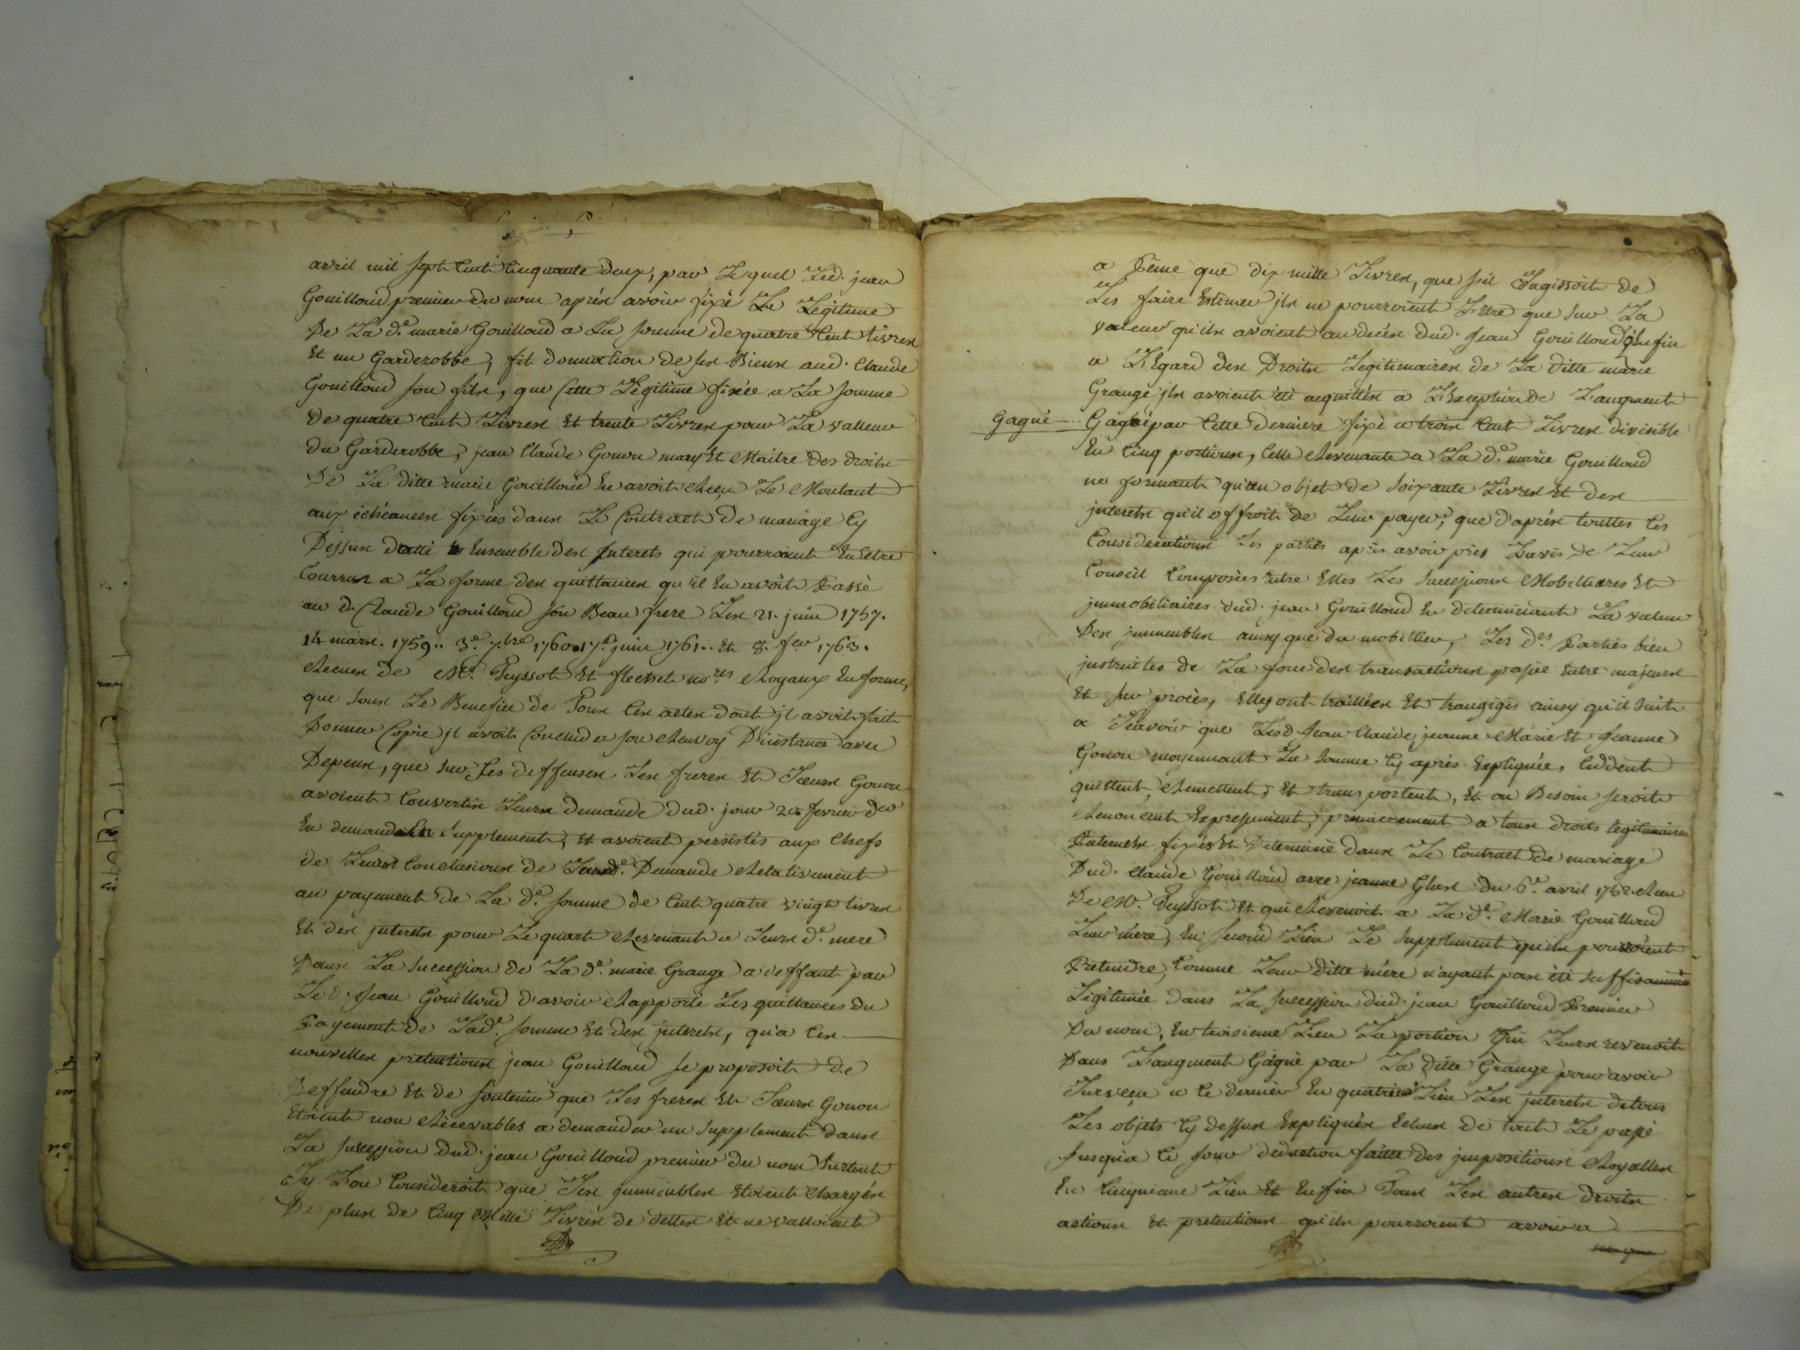 avril mil sept Cent Cinquante deux, par Lequel Led. jean
Gouilloud premier du nom après avoir fixé La Légitime
De La d.e marie Gouilloud a La somme de quatre Cent livres
Et un Garderobbe, fit donnation de ses Biens aud. Claude
Gouilloud son fils, que Cette Légitime fixée a La somme
de quatre Cent Livres Et trente Livres pour La valleur
du Garderobbe, jean Claude Gonon mary Et Maitre des droits
De La ditte marie Gouilloud En avoit Receu Le Montant
aux échéances fixées dans Le Contract de mariage Cy
Dessus datté Ensemble des jnterets qui pourroient En être
Courrus a La forme des quittances qu'il En avoit Passé
au d. Claude Gouilloud son Beau frere Les 21. juin 1757.
14 mars. 1759.. 3.e 7.bre 1760. 17.e juin 1761.. Et 8. fev 1763.
Receues de M.e Peyssot Et flechet no.res Royaux En forme,
que sous Le Benefice de Tous Ces actes dont jl avoit fait
Donner Copie jl avoit Conclud a son Renvoy D'instance avec
Depens, que sur Ses deffenses Les freres Et Sœurs Gonon
avoient Convertis Leurs demande dud. jour 20 fevrier d.er
En demande En Supplement, Et avoient persistés aux Chefs
de Leurs Conclusions de Lad.e Demande Relativement
au payement de La d.e somme de Cent quatre vingt livres
Et des jnterets pour Le quart Revenant a Leurs d.e mere
Dans La succession de La d.e marie Grange a deffaut par
Le d. Jean Gouilloud d'avoir Rapporté Les quittances du
Payement de Lad.e somme Et des jnterets, qu'a Ces
nouvelles prétentions jean Gouilloud se proposoit de
Deffendre Et de soutenir que Les freres Et Sœurs Gonon
Etoient non Recevables a demander un supplement dans
La succession dud. jean Gouilloud premier du nom surtout
Sy L'on Consideroit que Les jmmeubles Etoient Chargés
De plus de Cinq Mille Livres de dettes Et ne valloient
a Peine que dix mille Livres, que s'il S'agissoit de
Les faire Estimer jls ne pourroient L'etre que sur La
valeur qu'ils avoient au decès dud. Jean Gouilloud, Enfin
a L'Egard des Droits Legitimaires de La ditte marie
Grange jls avoient été acquittés a L'Exception de L'augment
Gagné
Gagné par Cette derniere fixé a trois Cent Livres divisible
En Cinq portions, Celle Revenante a La d.e marie Gouilloud
ne formant qu'un objet de soixante Livres Et des
jnterets qu'il offroit de Leur payer, que d'après touttes Ces
Considerations Les parties après avoir pris L'avis de Leur
Conseil Composées Entre Elles Les successions Mobiliaires Et
jmmobiliaires dud. jean Gouilloud En determinant La valeur
Des jmmeubles ainsy que du mobillier, Les d.es Parties bien
jnstruites de La force des transactions passée Entre majeurs
Et sur procès, Elles ont traittées Et transigés ainsy qu'il suit
a Scavoir que Lesd. Jean Claude, jeanne Marie Et Jeanne
Gonon moyennant La somme Cy après Expliquée, Cedent
quittent, Remettent, Et transportent, Et au Besoin seroit
Renoncent Expressement, premierement a tous droits legitimaires
Paternels fixés Et Determiné dans Le Contract de mariage
Dud. Claude Gouilloud avec jeanne Glas du 6.e avril 1752. Receu
De M.e Peyssot, Et qui Revenoit a La d.e Marie Gouilloud
Leur mere, En second Lieu Le supplement qu'ils pouvoient
Pretendre, Comme Leur ditte mere n'ayant pas été suffisamment
Légitimée dans La succession dud. jean Gouilloud Premier
Du nom, En troisieme Lieu La portion Qui Leurs revenoit
Dans L'augment Gagné par La ditte Grange pour avoir
Survécu a Ce dernier En quatrieme Lieu Les jnterets de tous
Les objets Cy dessus Expliqués Echus de tout Le passé
Jusqu'a Ce jour deduction faitte des jmpositions Royalles
En Cinquieme Lieu Et Enfin Tous Les autres droits
actions Et pretentions qu'ils pourroient avoir a